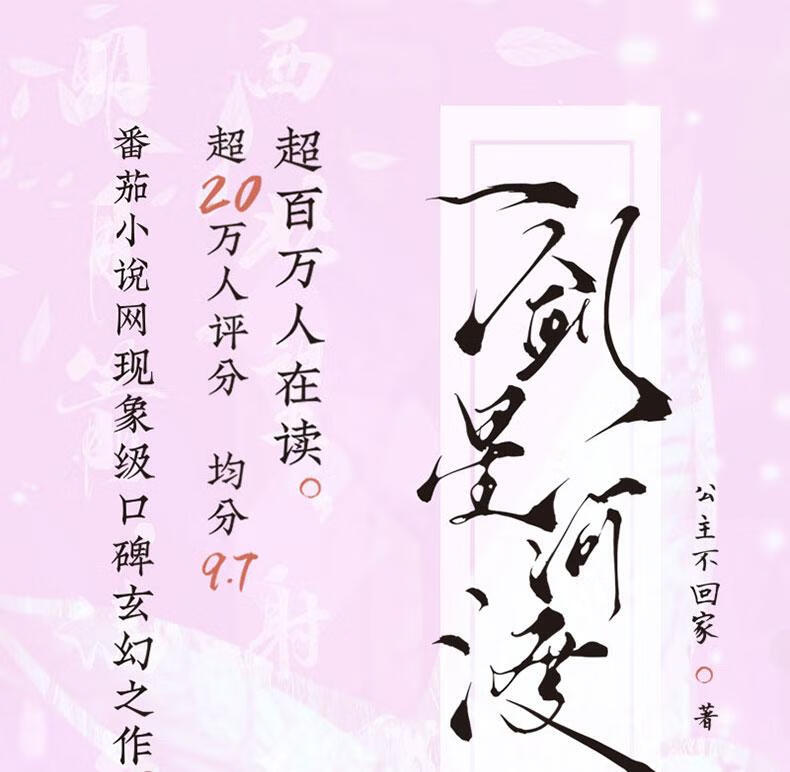 一剑星河渡
公主不回家 著
超百万人在读。
超20万人评分 均分9.7
番茄小说网现象级口碑玄幻之作